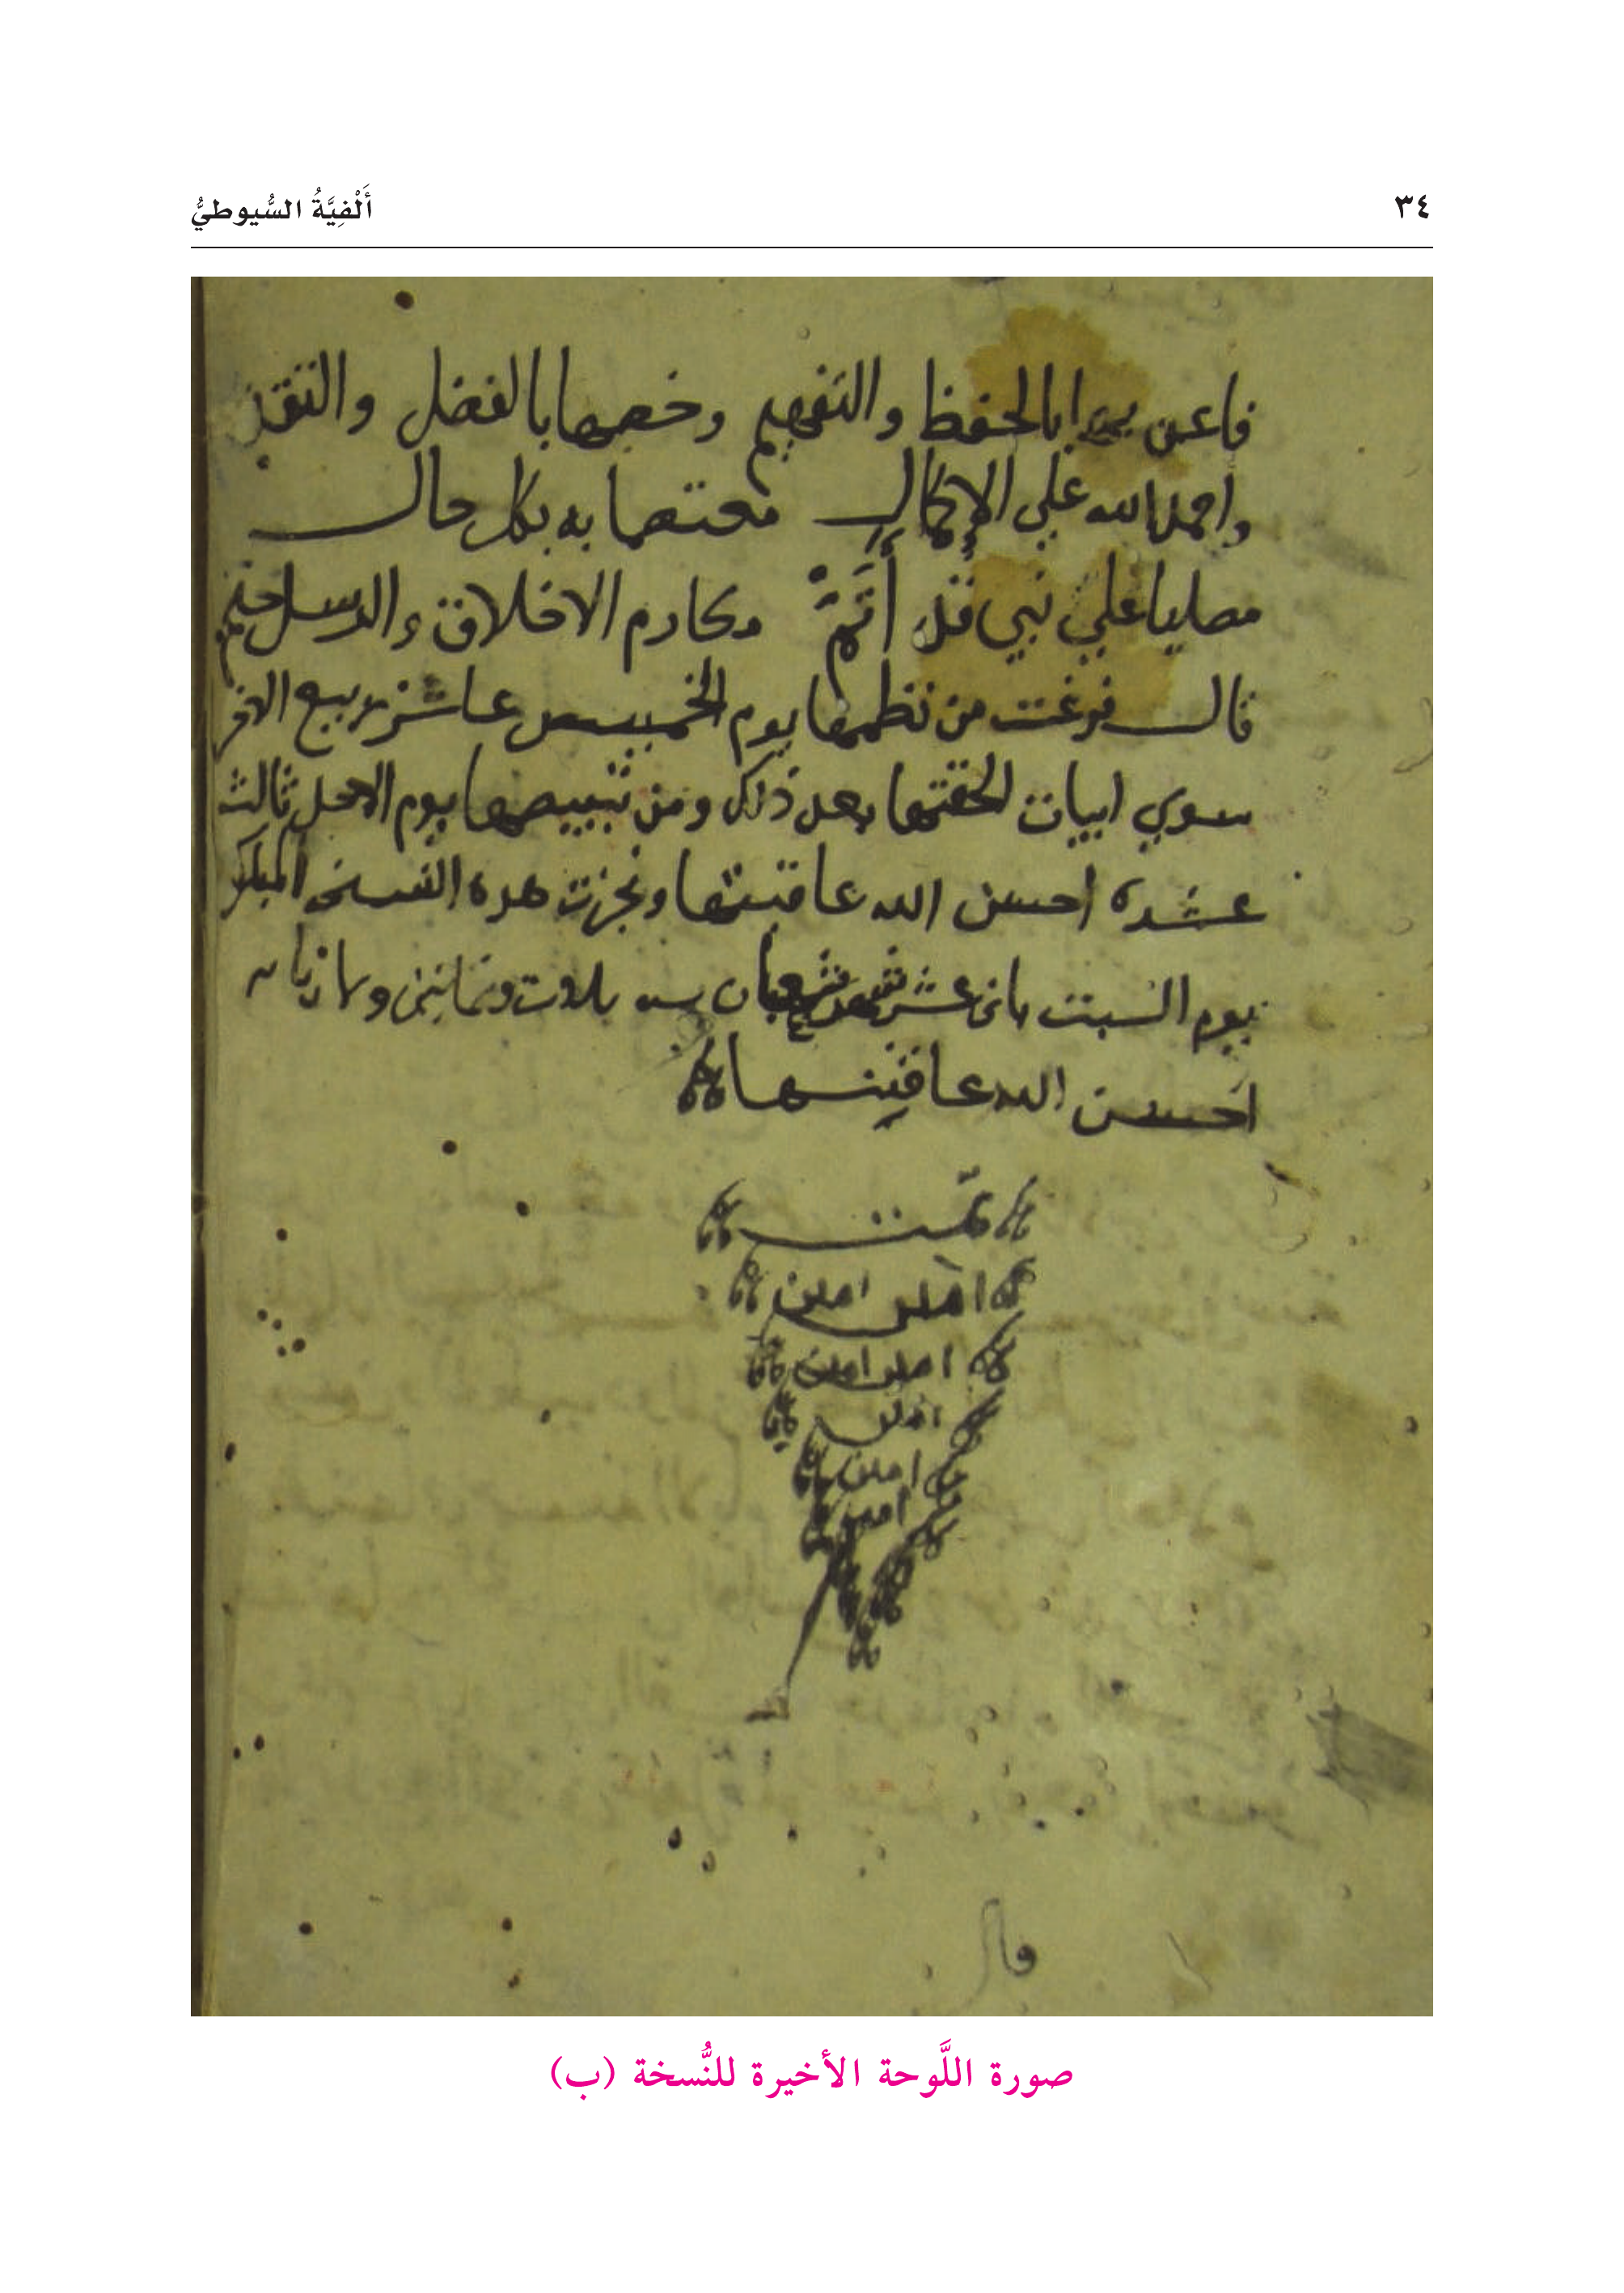 ٣٤
أَلْفِيَّةُ السُّيوطيُّ
فاعن بها بالحفظ والتفهيم وخصها بالفضل والتقد
واحمد الله علي الإكمال معتصما به بكل حال
مصليا علي نبي قد أتم مكارم الاخلاق والرسل ختم
قال فرغت من نظمها يوم الخميس عاشر ربيع الاخر
سوي ابيات الحقتها بعد ذلك ومن تبييضها يوم الاحد ثالث
عشره احسن الله عاقبتها ونجزت هده النسخه المبارك
يوم السبت ثاني عشر شعبان سنه ثلاث وثمانين وثمانمايه
احسن الله عاقبتها
تمت
امين امين
امين امين
امين
امين
امين
قال
صورة اللَّوحة الأخيرة للنُّسخة (ب)